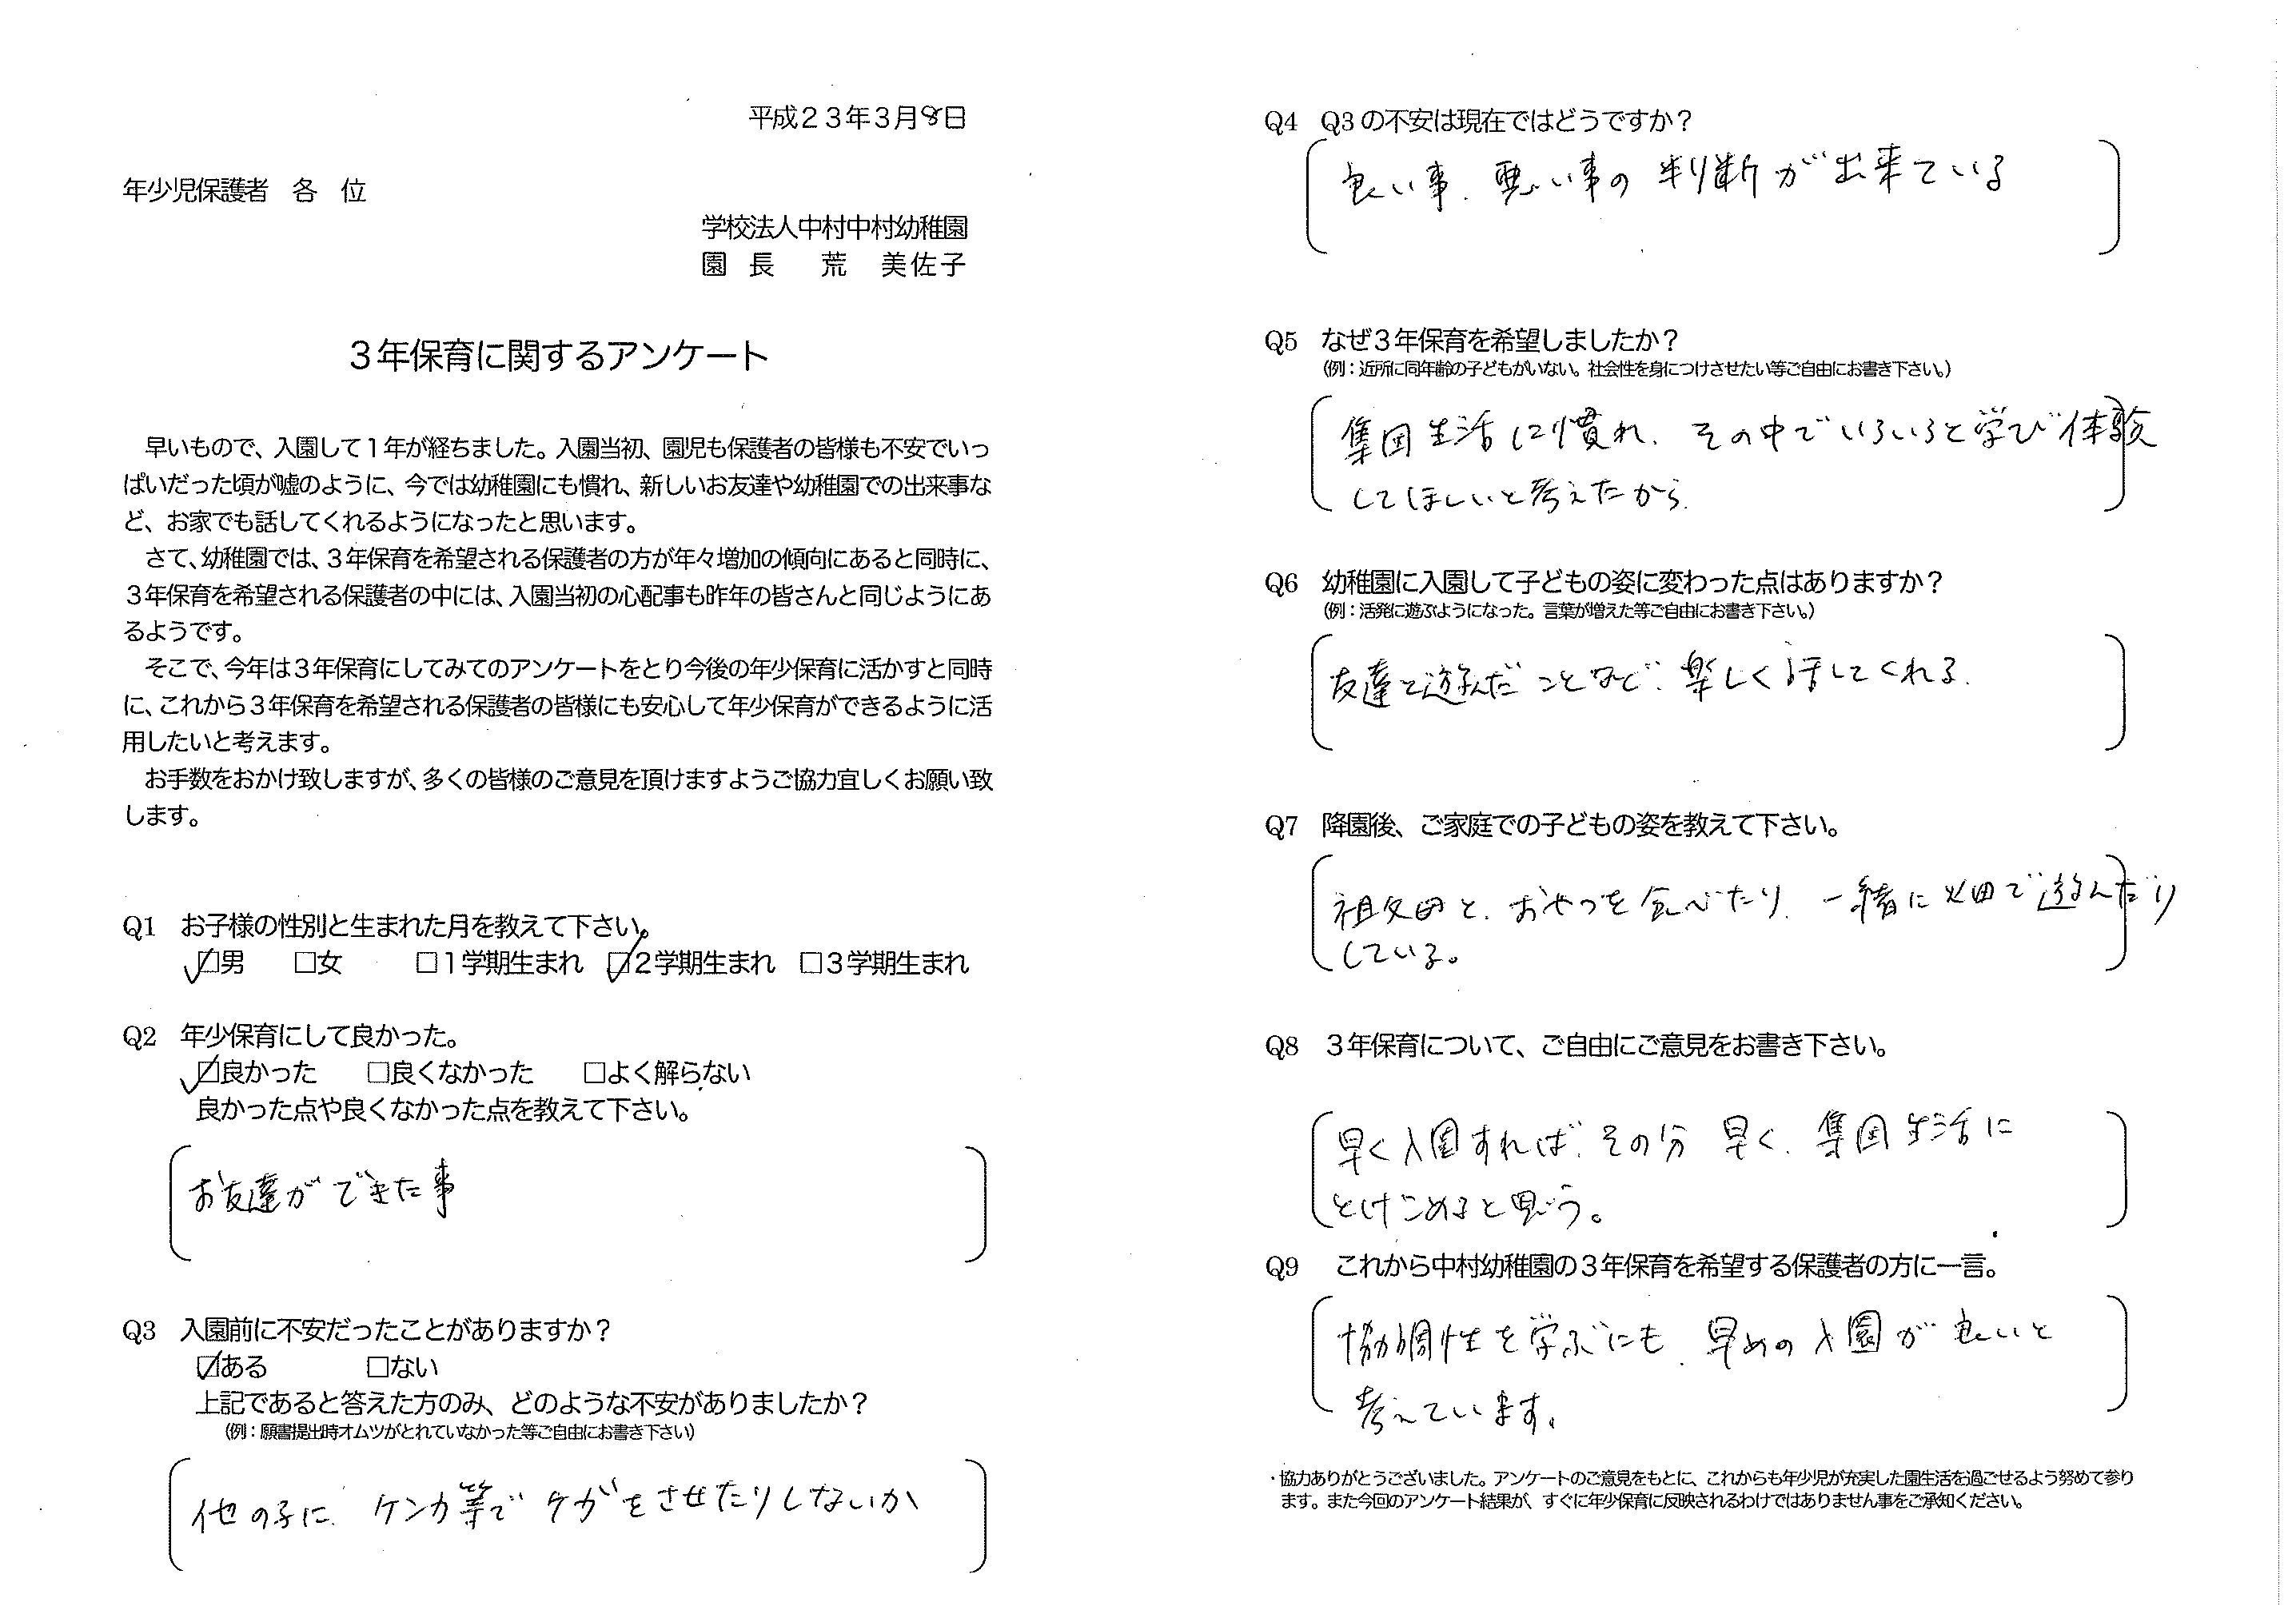 平成23年3月8日
年少児保護者　各　位
学校法人中村中村幼稚園
園　長　　荒　美佐子
3年保育に関するアンケート
早いもので、入園して1年が経ちました。入園当初、園児も保護者の皆様も不安でいっ
ぱいだった頃が嘘のように、今では幼稚園にも慣れ、新しいお友達や幼稚園での出来事な
ど、お家でも話してくれるようになったと思います。
さて、幼稚園では、3年保育を希望される保護者の方が年々増加の傾向にあると同時に、
3年保育を希望される保護者の中には、入園当初の心配事も昨年の皆さんと同じようにあ
るようです。
そこで、今年は3年保育にしてみてのアンケートをとり今後の年少保育に活かすと同時
に、これから3年保育を希望される保護者の皆様にも安心して年少保育ができるように活
用したいと考えます。
お手数をおかけ致しますが、多くの皆様のご意見を頂けますようご協力宜しくお願い致
します。
Q1　お子様の性別と生まれた月を教えて下さい。
☑男　□女　□1学期生まれ　☑2学期生まれ　□3学期生まれ
Q2　年少保育にして良かった。
☑良かった　□良くなかった　□よく解らない
良かった点や良くなかった点を教えて下さい。
お友達ができた事
Q3　入園前に不安だったことがありますか？
☑ある　□ない
上記であると答えた方のみ、どのような不安がありましたか？
（例：願書提出時オムツがとれていなかった等ご自由にお書き下さい）
他の子に、ケンカ等でケガをさせたりしないか
Q4　Q3の不安は現在ではどうですか？
良い事、悪い事の判断が出来ている
Q5　なぜ3年保育を希望しましたか？
（例：近所に同年齢の子どもがいない。社会性を身につけさせたい等ご自由にお書き下さい。）
集団生活に慣れ、その中でいろいろと学び体験
してほしいと考えたから.
Q6　幼稚園に入園して子どもの姿に変わった点はありますか？
（例：活発に遊ぶようになった。言葉が増えた等ご自由にお書き下さい。）
友達と遊んだことなど、楽しく話してくれる.
Q7　降園後、ご家庭での子どもの姿を教えて下さい。
祖父母と、おやつを食べたり、一緒に畑で遊んだり
している。
Q8　3年保育について、ご自由にご意見をお書き下さい。
早く入園すれば、その分早く、集団生活に
とけこめると思う。
Q9　これから中村幼稚園の3年保育を希望する保護者の方に一言。
協調性を学ぶにも、早めの入園が良いと
考えています。
・協力ありがとうございました。アンケートのご意見をもとに、これからも年少児が充実した園生活を過ごせるよう努めて参り
ます。また今回のアンケート結果が、すぐに年少保育に反映されるわけではありません事をご承知ください。